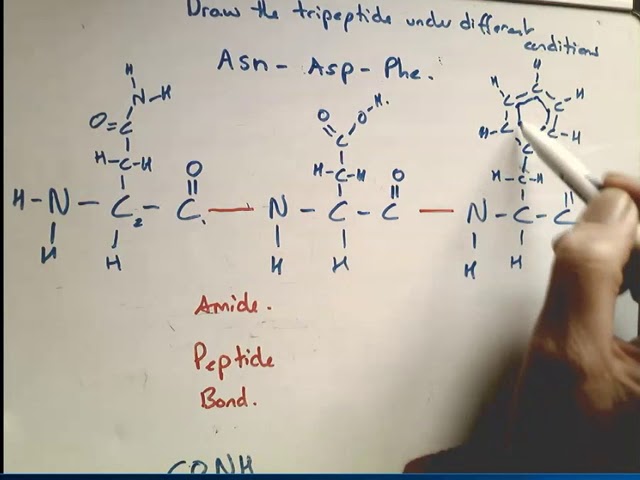 Draw the tripeptide under different
conditions
Asn - Asp - Phe.
H
N - H
O = C
H - C - H
H - N - C₂ - C
O
H
H
O
O - H.
C
H - C - H
O
N - C - C
H
H
H
H
C
H
C
C
C
H
C
H
C
H - C - H
N - C - C
H
H
Amide.
Peptide
Bond.
CONH